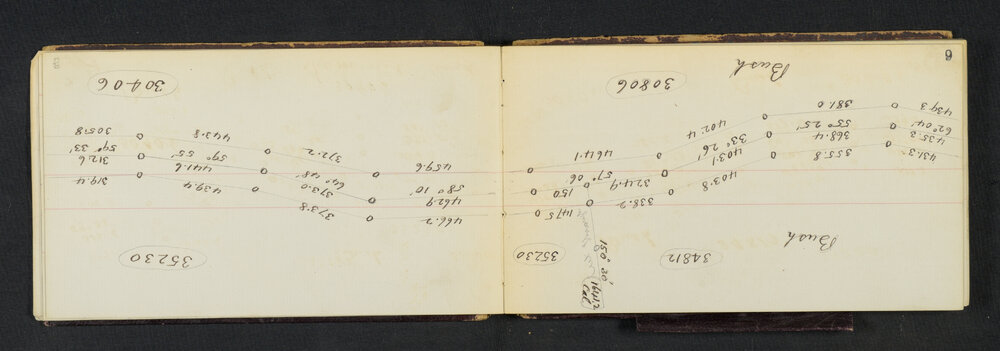 Bush
34812
35230
150° 30'
431.3 355.8 403.8 338.2 147.5
435.3 368.4 403.1 324.9 150
62° 04' 55° 25' 33° 26' 57° 06
439.3 381.0 402.4 464.1
Bush
30806
35230
466.2 373.8 439.4 319.4
462.9 373.0 441.6 312.6
58° 10' 64° 48' 59° 55' 59° 33'
459.6 372.2 443.8 305.8
30406